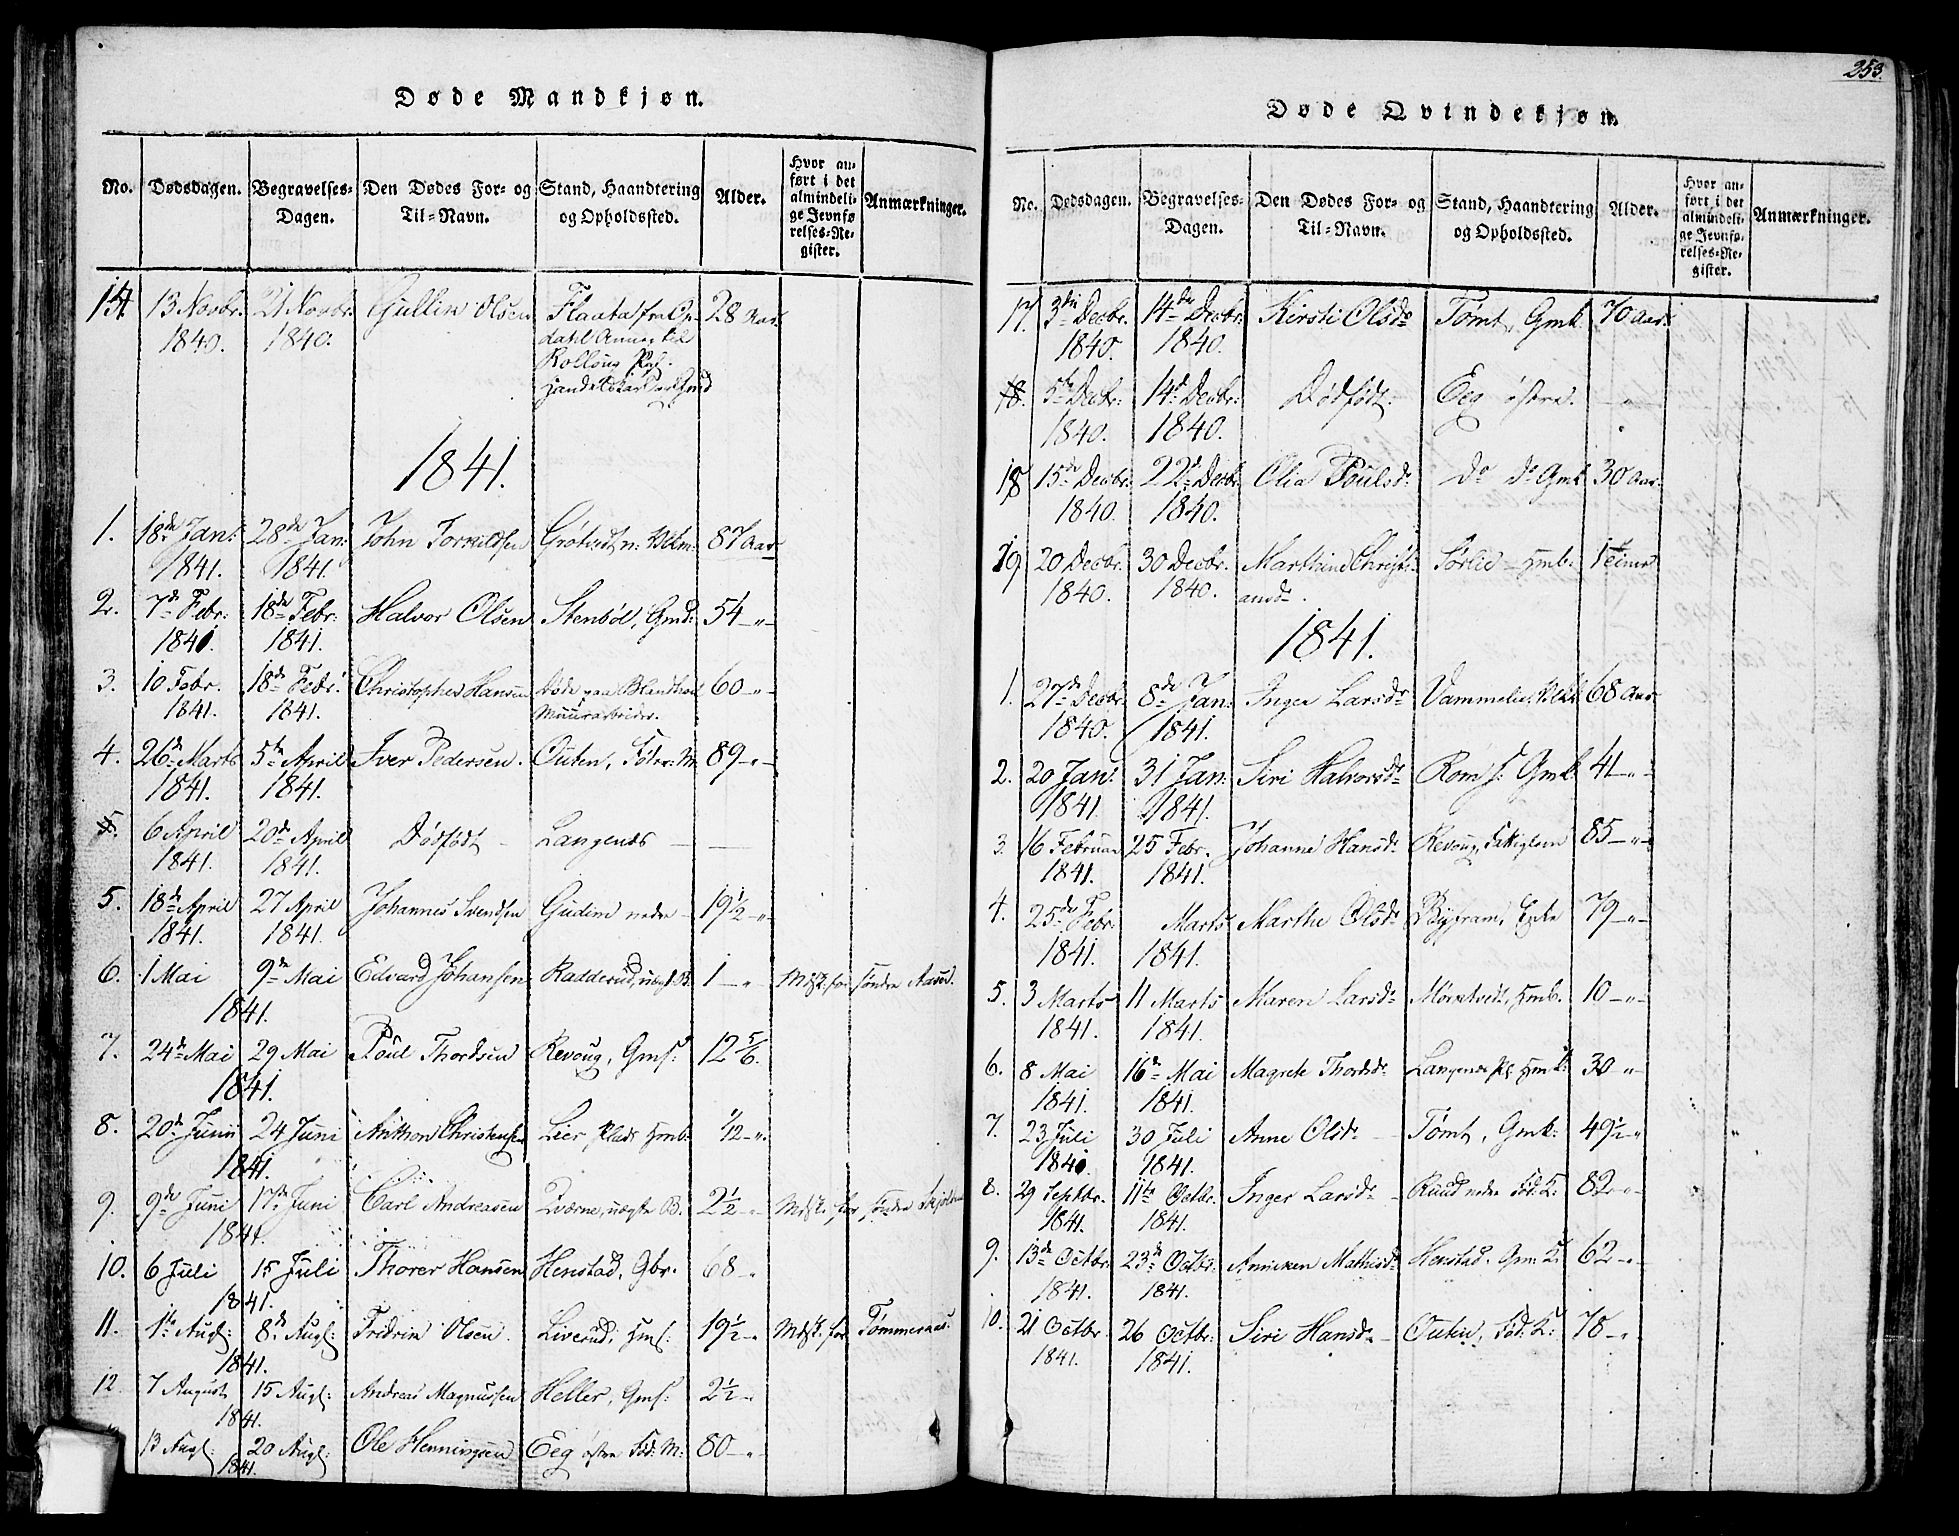 Døde Mandkjøn.
No. Dødsdagen. Begravelses-Dagen. Den Dødes For- og Til-Navn. Stand, Haandtering og Opholdssted. Alder. Hvor anført i det almindelige Jevnførelses-Register. Anmærkninger.
14. 13 Novbr. 1840. 21 Novbr. 1840. Gullin Olsen Flaata fra Op-
dahl
28 Aar.
1841.
1. 18de Jan: 1841. 28de Jan: 1841. John Torkildsen 87 Aar
2. 7de Febr: 1841. 18de Febr: 1841. Halvor Olsen Stenbøl, Gmd: 54 -"-
3. 10 Febr. 1841. 18de Febr: 1841. Christopher Hansen døde paa
Muurarbeider. 60 -"-
4. 26de Marts 1841. 5te April 1841. Iver Pedersen. Outen, 89 -"-
5. 6 April 1841. 20de April 1841. Dødfødt - Langenes - -
5. 18de April 1841. 27 April 1841. Johannes Svendsen Gudim nedre - 19½ -"-
6. 1 Mai 9de Mai 1841. Edvard Johansen Radderud, uægt. B. 1 -"- Mdsk. for søndre Aarud.
7. 24de Mai 29 Mai 1841. Poul Thordsen Revoug, Gms: 12 5/6.
8. 20de Junii 24 Juni 1841. Anthon Christensen Lier, Plads Hmb: ½ -"-
9. 9de Juni 17de Juni 1841. Carl Andreasen Qværne, uægte B. 2½ -"- Mdsk. for
10. 6 Juli 15 Juli 1841. Thorer Hansen Henstad, Gbr. 68 -"
11. 1te Augs: 8de Augs: 1841. Fridrin Olsen. Liverud, Hms: 19½ -" Mdsk. for Tømmernæs.
12. 7 August 15 Augs: 1841. Andreas Magnussen Heller, Gms: 2½ -"
13 Augs: 20 Augs: 1841. Ole Henningsen Eeg østre Fød: M: 80 -"-
253.
Døde Qvindekjøn.
No. Dødsdagen. Begravelses-Dagen. Den Dødes For- og Til-Navn. Stand, Haandtering og Opholdssted. Alder. Hvor anført i det almindelige Jevnførelses-Register. Anmærkninger.
17. 3die Decbr. 1840. 14de Decbr: 1840. Kirsti Olsdr Tømt, Gmk. 70 Aar.
18. 5te Decbr: 1840. 14de Decbr: 1840. Dødfødt. Eeg østre. -"-
18 15de Decbr. 1840. 22de Decbr. 1840. Olia Poulsdr Do do Gmk 30 Aar.
19 20 Decbr. 1840. 30 Decbr. 1840. Marthine Christi-
ansdr. Sørlie Hmb:
1841.
1. 27de Decbr. 1840. 8de Jan: 1841. Inger Larsdr 68 Aar
2. 20 Jan: 1841. 31 Jan: 1841. Siri Halvorsdr Røm s: Gmk. 41 -"-
3. 16 Februar 1841. 25 Febr. 1841. Johanne Hansdr Revoug, Fattiglem 85 -"-
4. 25de Febr. 1841. Marts 1841. Marthe Olsdr Enke 79 -"-
5. 3 Marts 1841. 11 Marts 1841. Maren Larsdr Hmb. 10 -"-
6. 8 Mai 1841. 16de Mai 1841. Magrete Thordsdr Langenes Pl. Hmk: 30 -"-
7. 23 Juli 1841. 30 Juli 1841. Anne Olsdr - Tømt, Gmk: 49½ -"
8. 29 Septbr. 1841. 11te Octbr. 1841. Inger Larsdr - Ruud nedre Fød: K: 82 -"-
9. 13de Octbr. 1841. 23de Octbr: 1841. Anniken Mathisdr Henstad, Gm: K: 62 -"-
10. 21 Octbr. 1841. 26 Octbr: 1841. Siri Hansdr - Outen, Fød: K: 78 -"